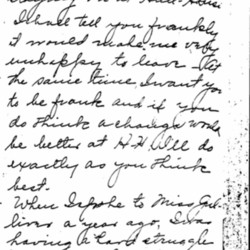 I shall tell you frankly
it would make me very
unhappy to leave - at
the same time I want you
to be frank and if you
do think a change would
be better at H.H. I'll do
exactly as you think
best.
When I spoke to Miss Gul-
liver a year ago, I was
having a hard struggle